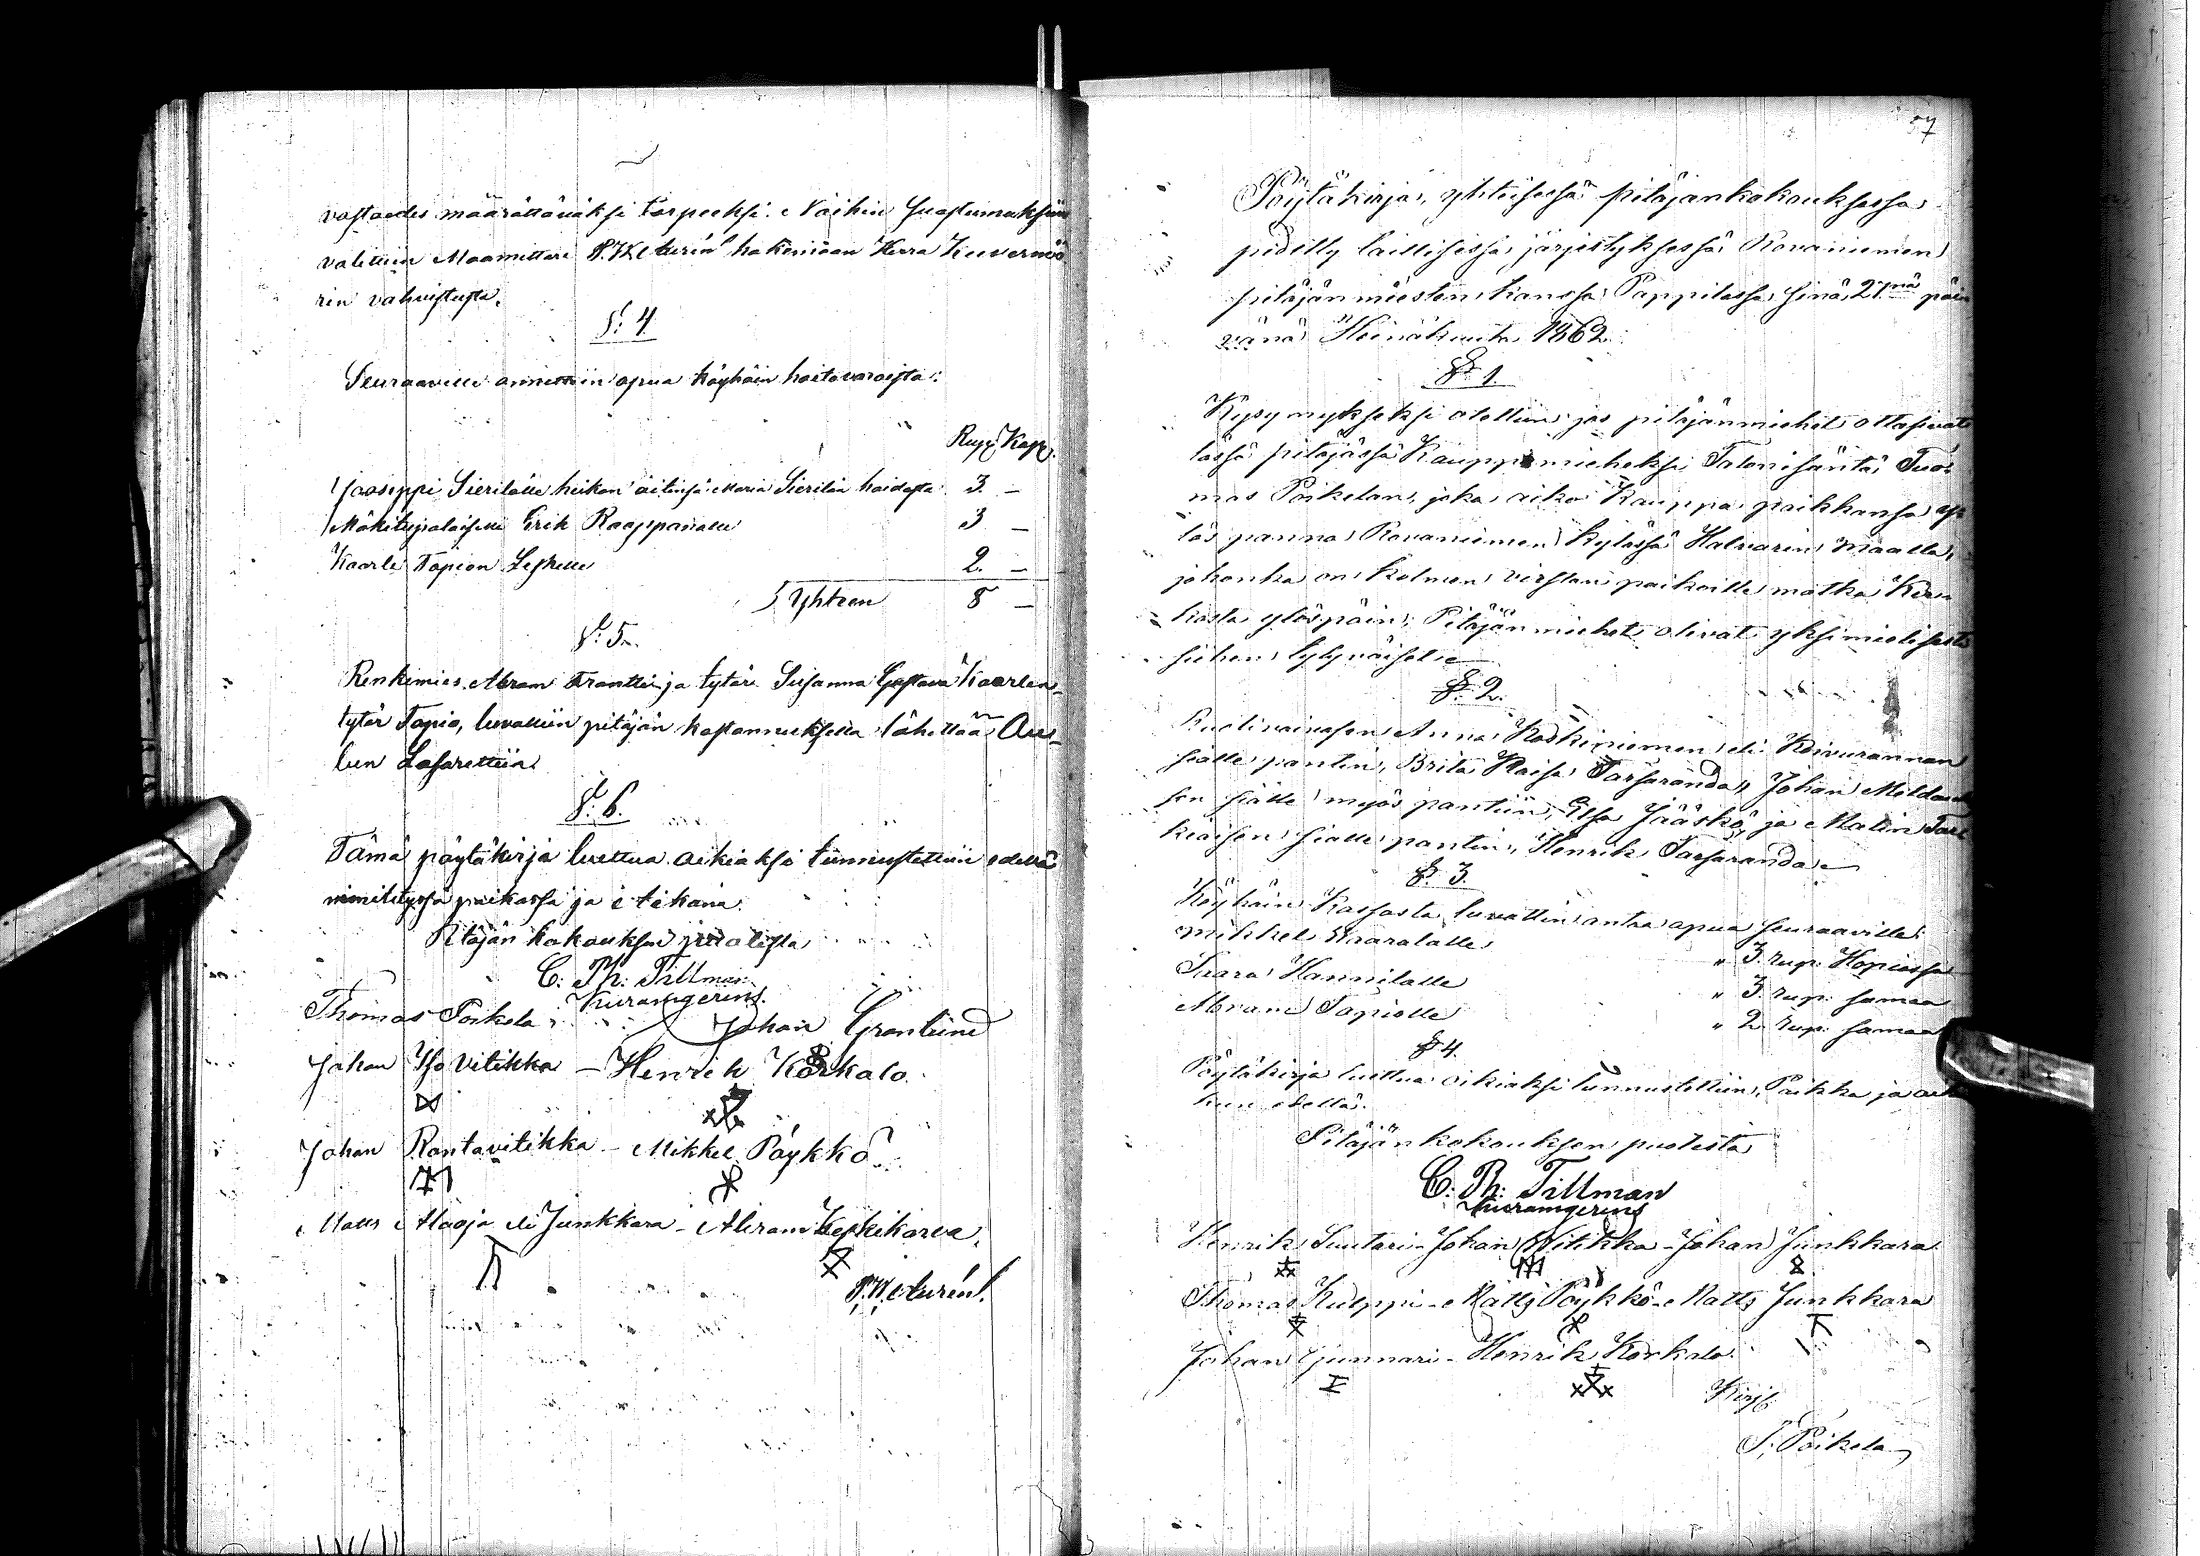 vastaedes määrättäväksi tarpeeksi. Näihin suostumuksiin
valittiin Maamittari hakemaan Herra Kuvernöö
rin vahvistusta.
§: 4
Seuraaville annettiin apua köyhäin hoitovaroista:
Rupl. Kop.
Joosippi Sierilälle heikon äitinsä Maria Sierilän hoidosta 3. –
Mäkitupalaiselle Erik Raappanalle 3 –
Kaarle Tapion Leskelle 2. –
Yhteen 8 –
§: 5.
Renkimies Abram Frantti ja tytär Susanna Gustava Kaarlen
tytär Tapio, luvattiin pitäjän kostannuksella lähettää Ou-
lun Lasarettiin.
§: 6.
Tämä pöytäkirja luettua oikiaksi tunnustettiin edellä
nimitetyssä paikassa ja aikana.
Pitäjän kokouksen puolesta
C: Th: Tillman
Thomas Poikela Johan Gronlund
Johan Iso Vitikka – Henrik Korkalo
Johan Rantavitikka – Mikkel Pöykkö
Matts Alaoja eli Junkkara – Abram Keskikorva
07
Pöytäkirja, yhteisessä pitäjänkokouksessa
pidetty laillisessa järjestyksessä Rovaniemen
pitäjän miesten kanssa Pappilassa sinä 27:nä päi
vänä Heinäkuuta 1862.
§ 1.
Kysymykseksi otettiin jos pitäjänmiehet ottasivat
tässä pitäjässä Kauppamieheksi Talonisäntä Tuo
mas Poikelan, joka aikoo Kauppa paikkansa y
lös panna Rovaniemen Kylässä Halvarin maalla,
johonka on kolmen virstan paikoille matka Kir
kosta ylöspäin; Pitäjänmiehet olivat yksimielisesti
siihen tytyväiset.
§ 2.
Ruotivaivasen Anna Koskiniemen eli Koivurannan
sialle pantiin, Brita Kaisa Tarsaranda, Johan
sen sialle myös pantiin, Elsa Jääskö, ja Malin
kiaisen sialle pantiin, Henrik Tarsaranda.
§ 3.
Köyhäin Kassasta luvattiin antaa apua seuraaville:
Mikkel Waaralalle " 3. rup: Hopiassa
Saara Hannilalle " 3. rup: samaa
Abram Tapiolle " 2 rup: samaa
§ 4.
Pöytäkirja luettua oikiaksi tunnustettiin, Paikka ja aik
kun edellä.
Pitäjän kokouksen puolesta
C: Th: Tillman
Henrik Suutari – Johan Witikka – Johan Junkkara
Thomas Kulppi – Matts Pöykkö – Matts Junkkara
Johan Gunnari – Henrik Korkalo
Kirj:
T: Poikela